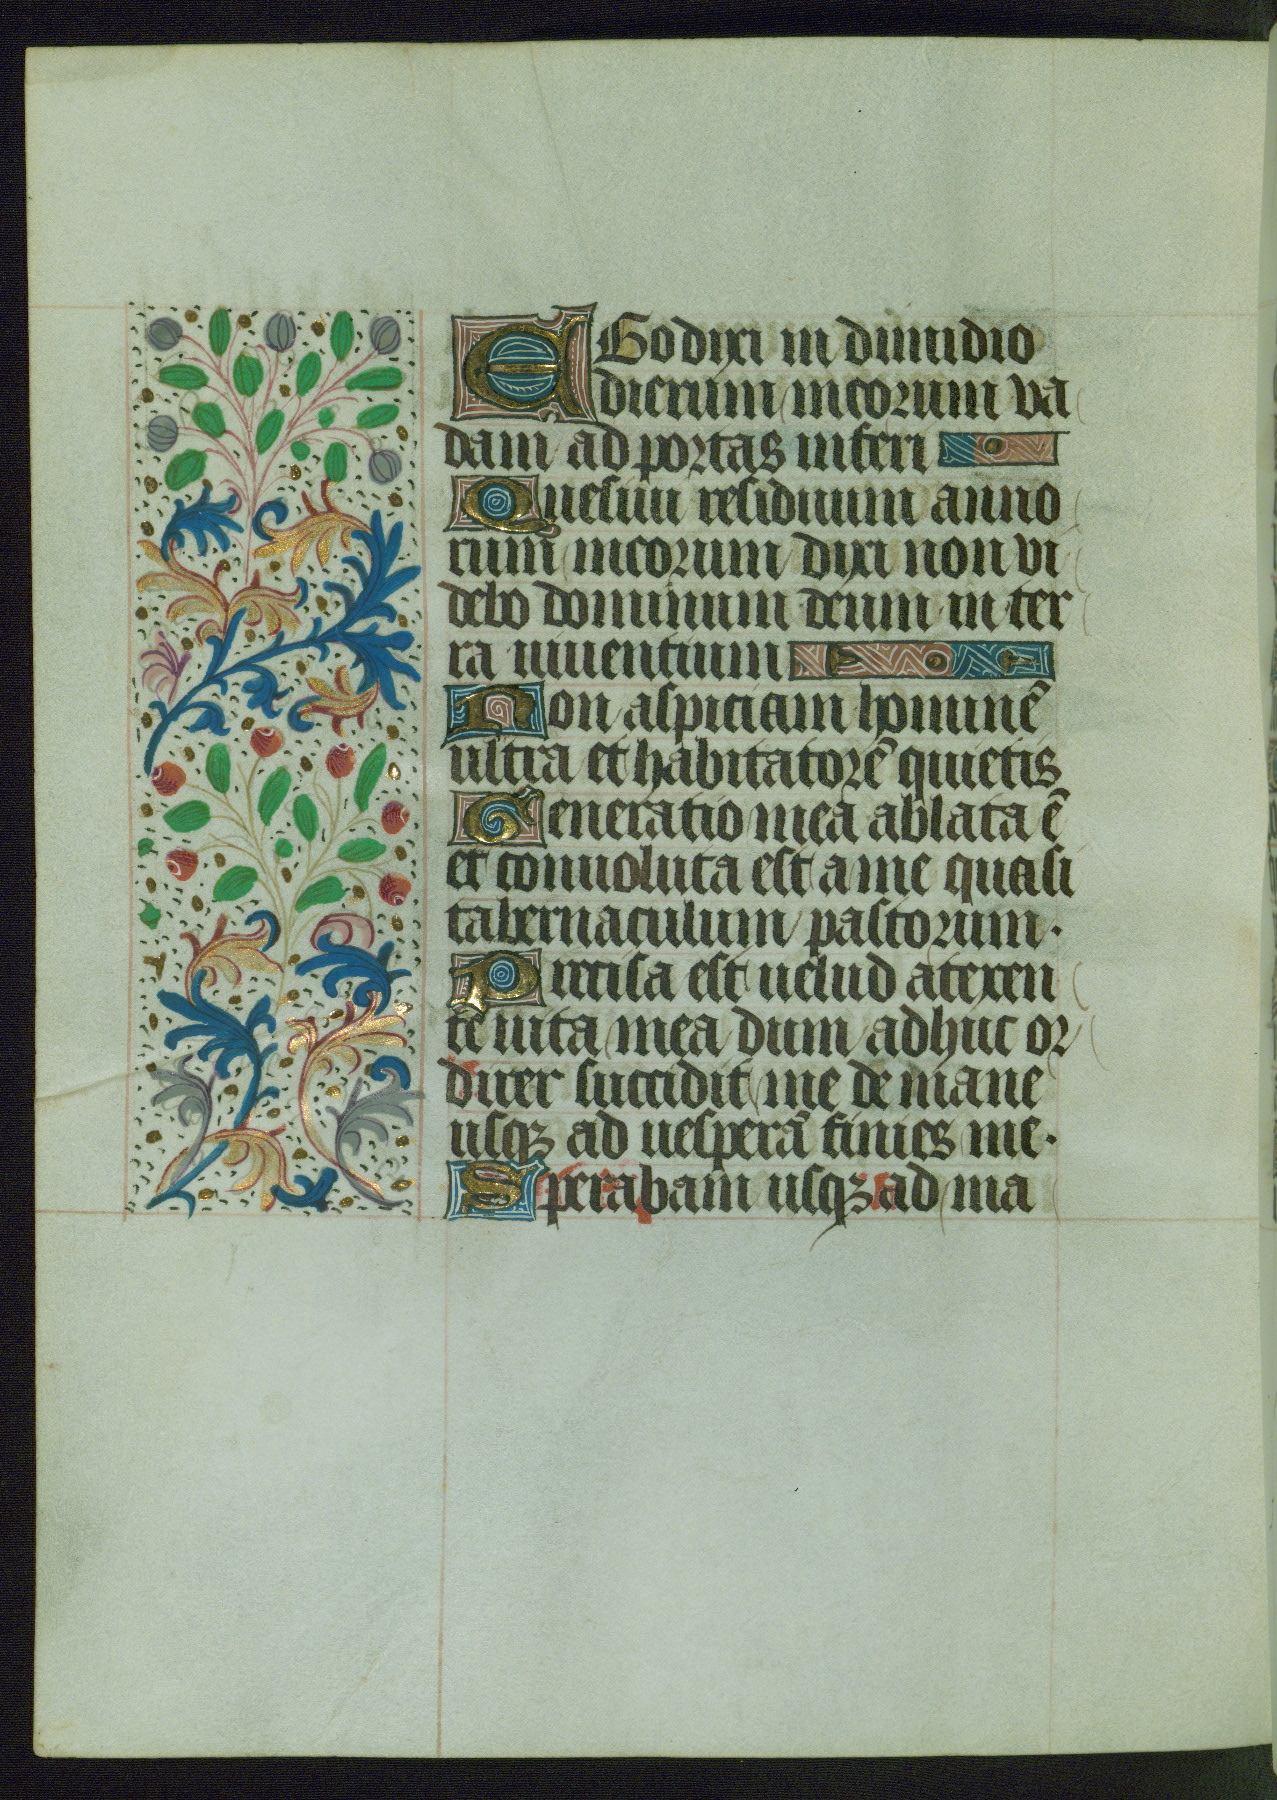 EGo dixi in dimidio
dierum meorum va
dam ad portas inferi
Quesiui residuum anno
rum meorum dixi non vi
debo dominum deum in ter
ra uiuentium
Non aspiciam hominē
ultra et habitatorē quietis
Generatio mea ablata ē
et conuoluta est a me quasi
tabernaculum pastorum.
Precisa est uelud a texen
te uita mea dum adhuc or
direr succidit me de mane
usqꝫ ad uesperā finies me.
Sperabam usqꝫ ad ma